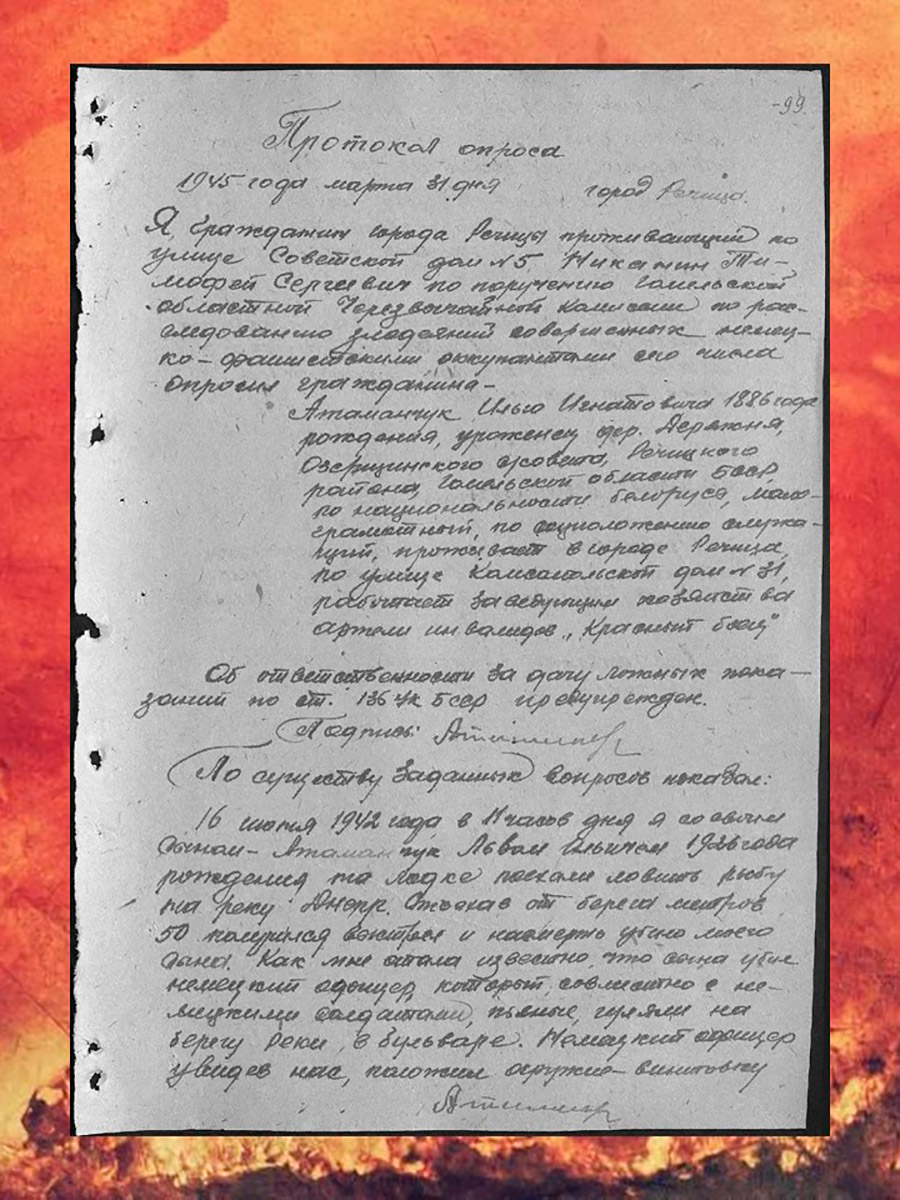 -99
Протокол опроса
1945 года марта 31 дня город Речица.
Я, гражданин города Речицы проживающий по
улице Советской дом №5, Никанин Ти-
мофей Сергеевич по поручению Гомельской
областной Черезвычайной комисии по рас-
следованию злодеяний совершенных немец-
ко-фашистскими оккупантами сего числа
опросил гражданина-
Атаманчук Илью Игнатовича 1886 года
рождения, уроженец дер. Деражня,
Озерщинского с/совета, Речицкого
района, Гомельской области БССР,
по национальности белоруса, мало-
грамотный, по соцположению служа-
щий, проживает в городе Речица,
по улице Комсомольской дом №31,
работает заведующим хозяйства
артели инвалидов „Красный боец"
Об ответственности за дачу ложных пока-
заний по ст. 136 УК БССР предупрежден.
Подпись:
По существу заданных вопросов показал:
16 июня 1942 года в 11 часов дня я со своим
сыном - Атаманчук Львом Ильичем 1926 года
рождения на лодке поехали ловить рыбу
на реку Днепр. Отъехав от берега метров
50 получился выстрел и насмерть убило моего
сына. Как мне стало известно, что сына убил
немецкий офицер, который совместно с не-
мецкими солдатами, пьяные, гуляли на
берегу реки, в бульваре. Немецкий офицер
увидев нас, положил оружие-винтовку